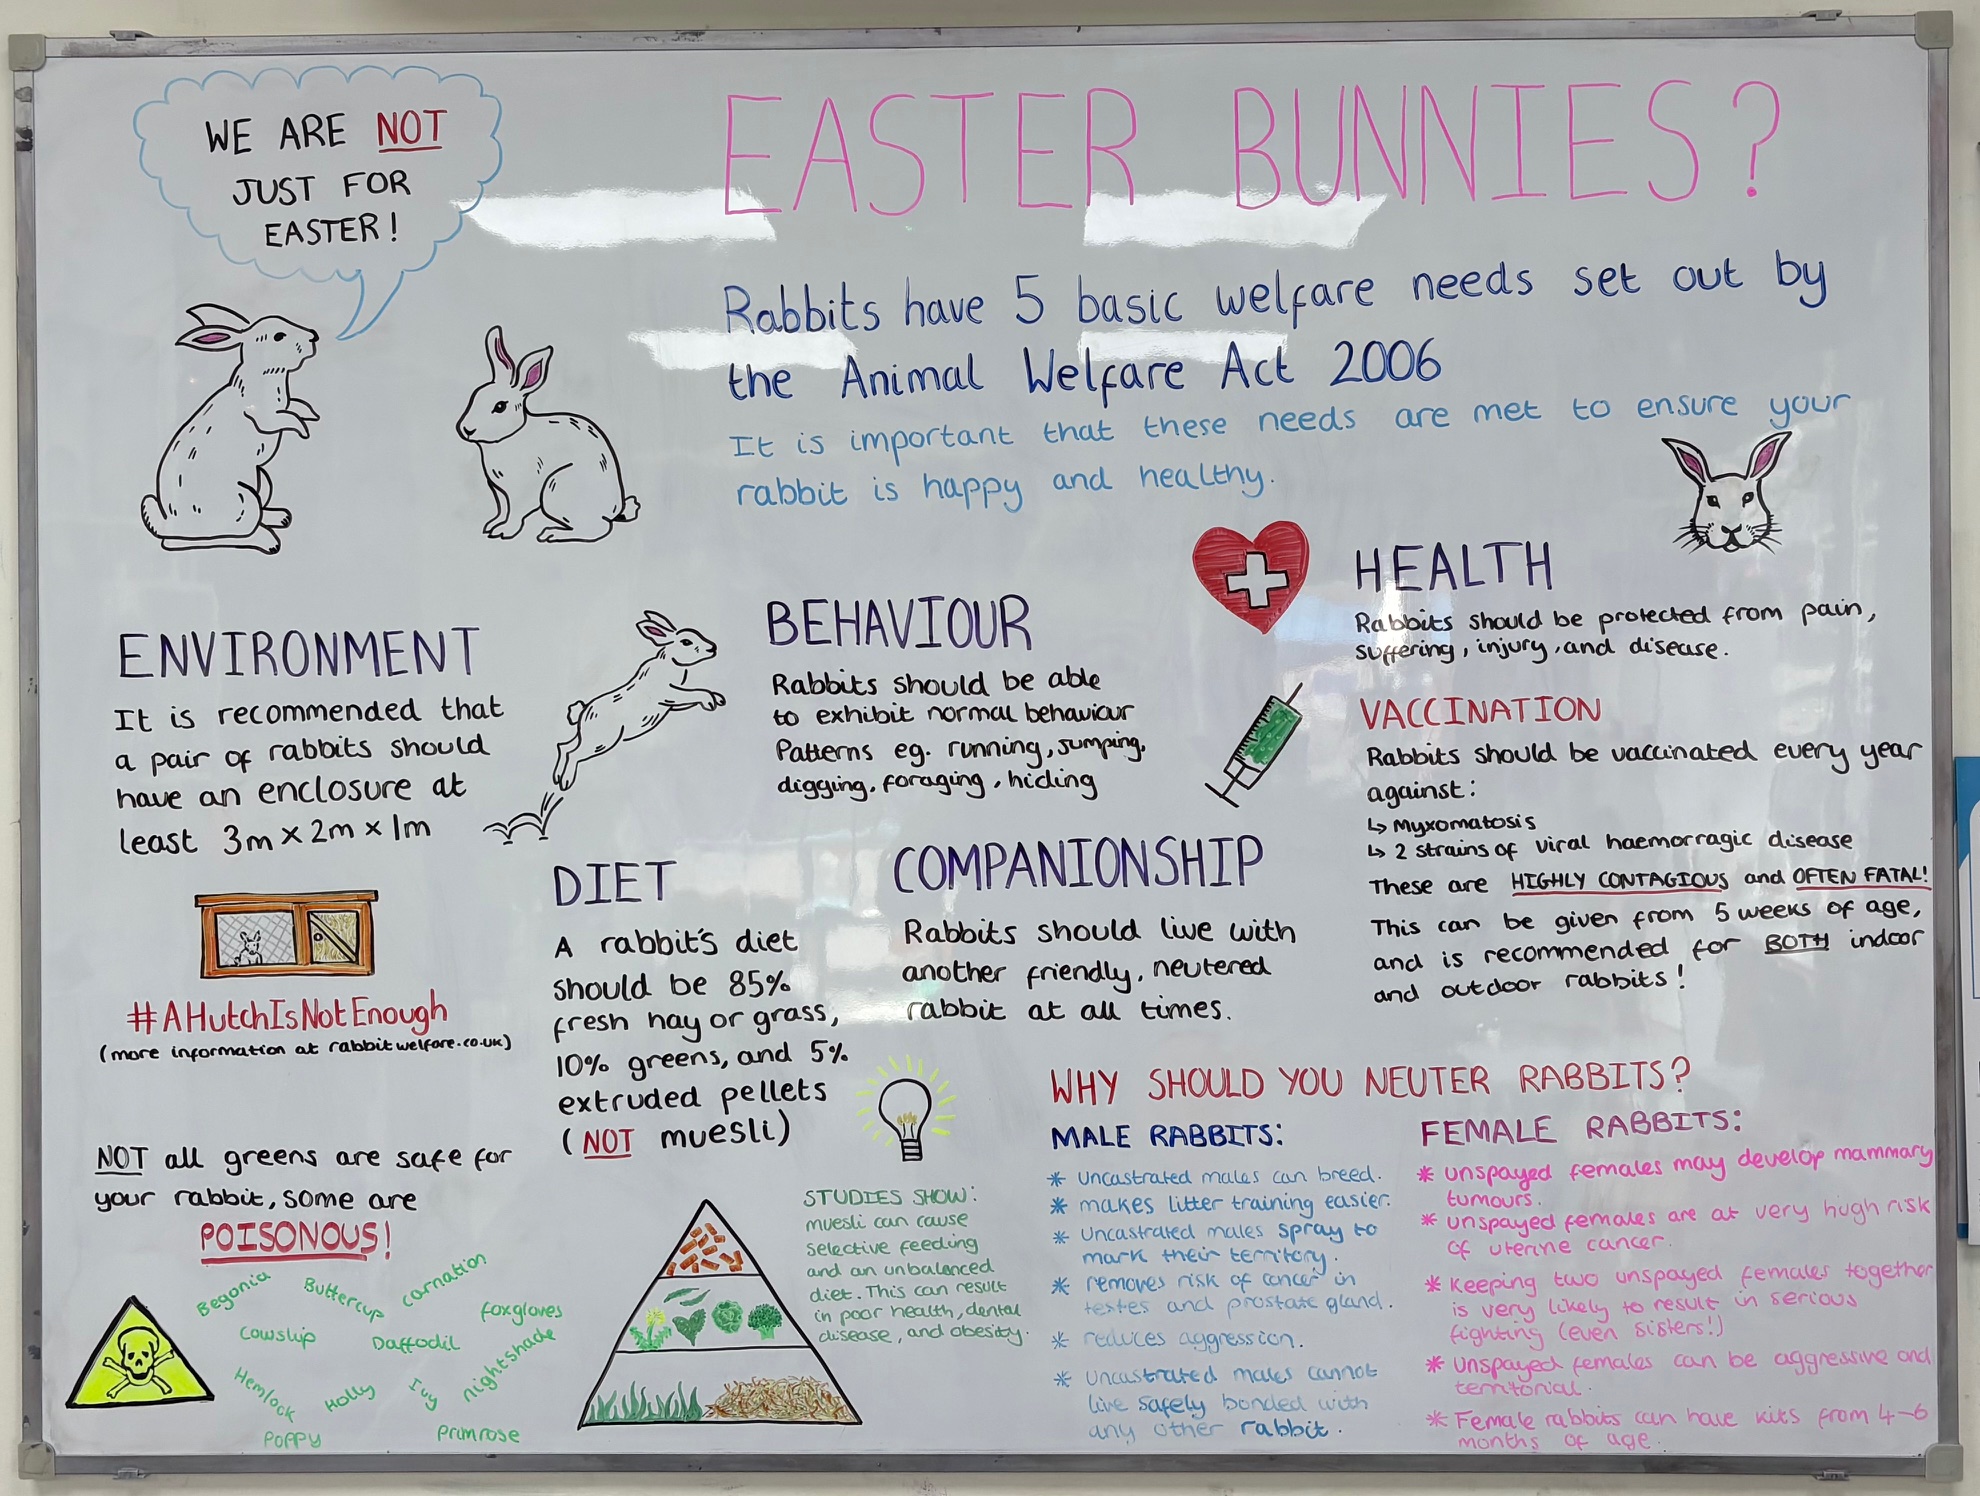 WE ARE NOT
JUST FOR
EASTER!
EASTER BUNNIES?
Rabbits have 5 basic welfare needs set out by
the Animal Welfare Act 2006
It is important that these needs are met to ensure your
rabbit is happy and healthy.
ENVIRONMENT
It is recommended that
a pair of rabbits should
have an enclosure at
least 3m x 2m x 1m
#AHutchIsNotEnough
(more information at rabbitwelfare.co.uk)
BEHAVIOUR
Rabbits should be able
to exhibit normal behaviour
Patterns eg. running, jumping,
digging, foraging, hiding
HEALTH
Rabbits should be protected from pain,
suffering, injury, and disease.
VACCINATION
Rabbits should be vaccinated every year
against:
↳ Myxomatosis
↳ 2 strains of viral haemorragic disease
These are HIGHLY CONTAGIOUS and OFTEN FATAL!
This can be given from 5 weeks of age,
and is recommended for BOTH indoor
and outdoor rabbits!
DIET
A rabbit's diet
should be 85%
fresh hay or grass,
10% greens, and 5%
extruded pellets
(NOT muesli)
COMPANIONSHIP
Rabbits should live with
another friendly, neutered
rabbit at all times.
NOT all greens are safe for
your rabbit, some are
POISONOUS!
Begonia
Buttercup
Carnation
foxgloves
Cowslip
Daffodil
nightshade
Hemlock
Holly
Ivy
Poppy
Primrose
STUDIES SHOW:
muesli can cause
selective feeding
and an unbalanced
diet. This can result
in poor health, dental
disease, and obesity.
WHY SHOULD YOU NEUTER RABBITS?
MALE RABBITS:
* uncastrated males can breed.
* makes litter training easier.
* Uncastrated males spray to
mark their territory.
* removes risk of cancer in
testes and prostate gland.
* reduces aggression.
* uncastrated males cannot
live safely bonded with
any other rabbit.
FEMALE RABBITS:
* unspayed females may develop mammary
tumours.
* unspayed females are at very hugh risk
of uterine cancer.
* Keeping two unspayed females together
is very likely to result in serious
fighting (even sisters!)
* Unspayed females can be aggressive and
territorial.
* Female rabbits can have kits from 4-6
months of age.